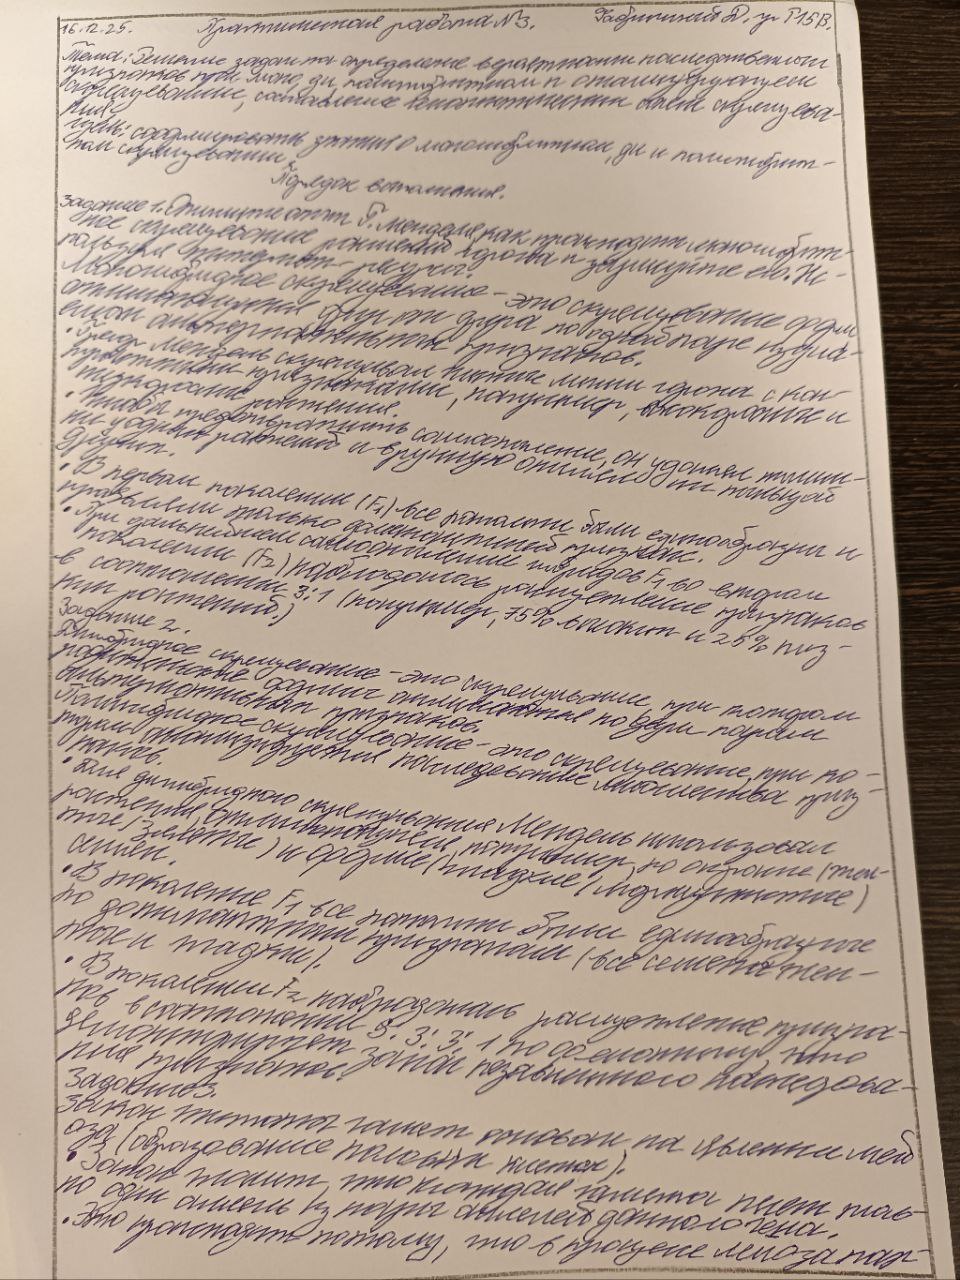 16.12.25. Практическая работа №3. гр Г15В.
Тема: Решение задач на определение вероятности наследственных
признаков при моно, ди, полигибридном и анализирующем
скрещивании, составление генотипических схем скрещива-
ния
Цель: сформировать знания о моногибридном, ди и полигибрид-
ном скрещивании.
Порядок выполнения.
Задание 1. Опишите опыт Г. Менделя, как происходит моногибрид-
ное скрещивание растений гороха и запишите его. Ис-
пользуя интернет-ресурс.
Моногибридное скрещивание - это скрещивание форм
отличающихся друг от друга по одной паре изуча-
емых альтернативных признаков.
• Грегор Мендель скрещивал чистые линии гороха с кон-
трастными признаками, например, высокорослые и
низкорослые растения.
• Чтобы предотвратить самоопыление, он удалял тычин-
ки у одних растений и вручную опылял их пыльцой
других.
• В первом поколении (F1) все потомки были единообразны и
проявляли только доминантный признак.
• При дальнейшем самоопылении гибридов F1 во втором
поколении (F2) наблюдалось расщепление признаков
в соотношении 3:1 (например, 75% высоких и 25% низ-
ких растений.)
Задание 2.
Дигибридное скрещивание - это скрещивание, при котором
родительские формы отличаются по двум парам
альтернативных признаков.
Полигибридное скрещивание - это скрещивание, при ко-
тором анализируется наследование множества приз-
наков.
• Для дигибридного скрещивания Мендель использовал
растения, отличающиеся, например, по окраске (жел-
тые/зеленые) и форме (гладкие/морщинистые)
семян.
• В поколение F1 все потомки были единообразные
по доминантным признакам (все семена жел-
тые и гладкие).
• В поколении F2 наблюдалось расщепление призна-
ков в соотношении 9:3:3:1 по фенотипу, что
демонстрирует закон независимого наследова-
ния признаков.
Задание 3.
Закон чистоты гамет основан на явлении мей
оза (образование половых клеток).
• Закон гласит, что каждая гамета несет толь-
ко один аллель из пары аллелей данного гена.
• Это происходит потому, что в процессе мейоза пар-